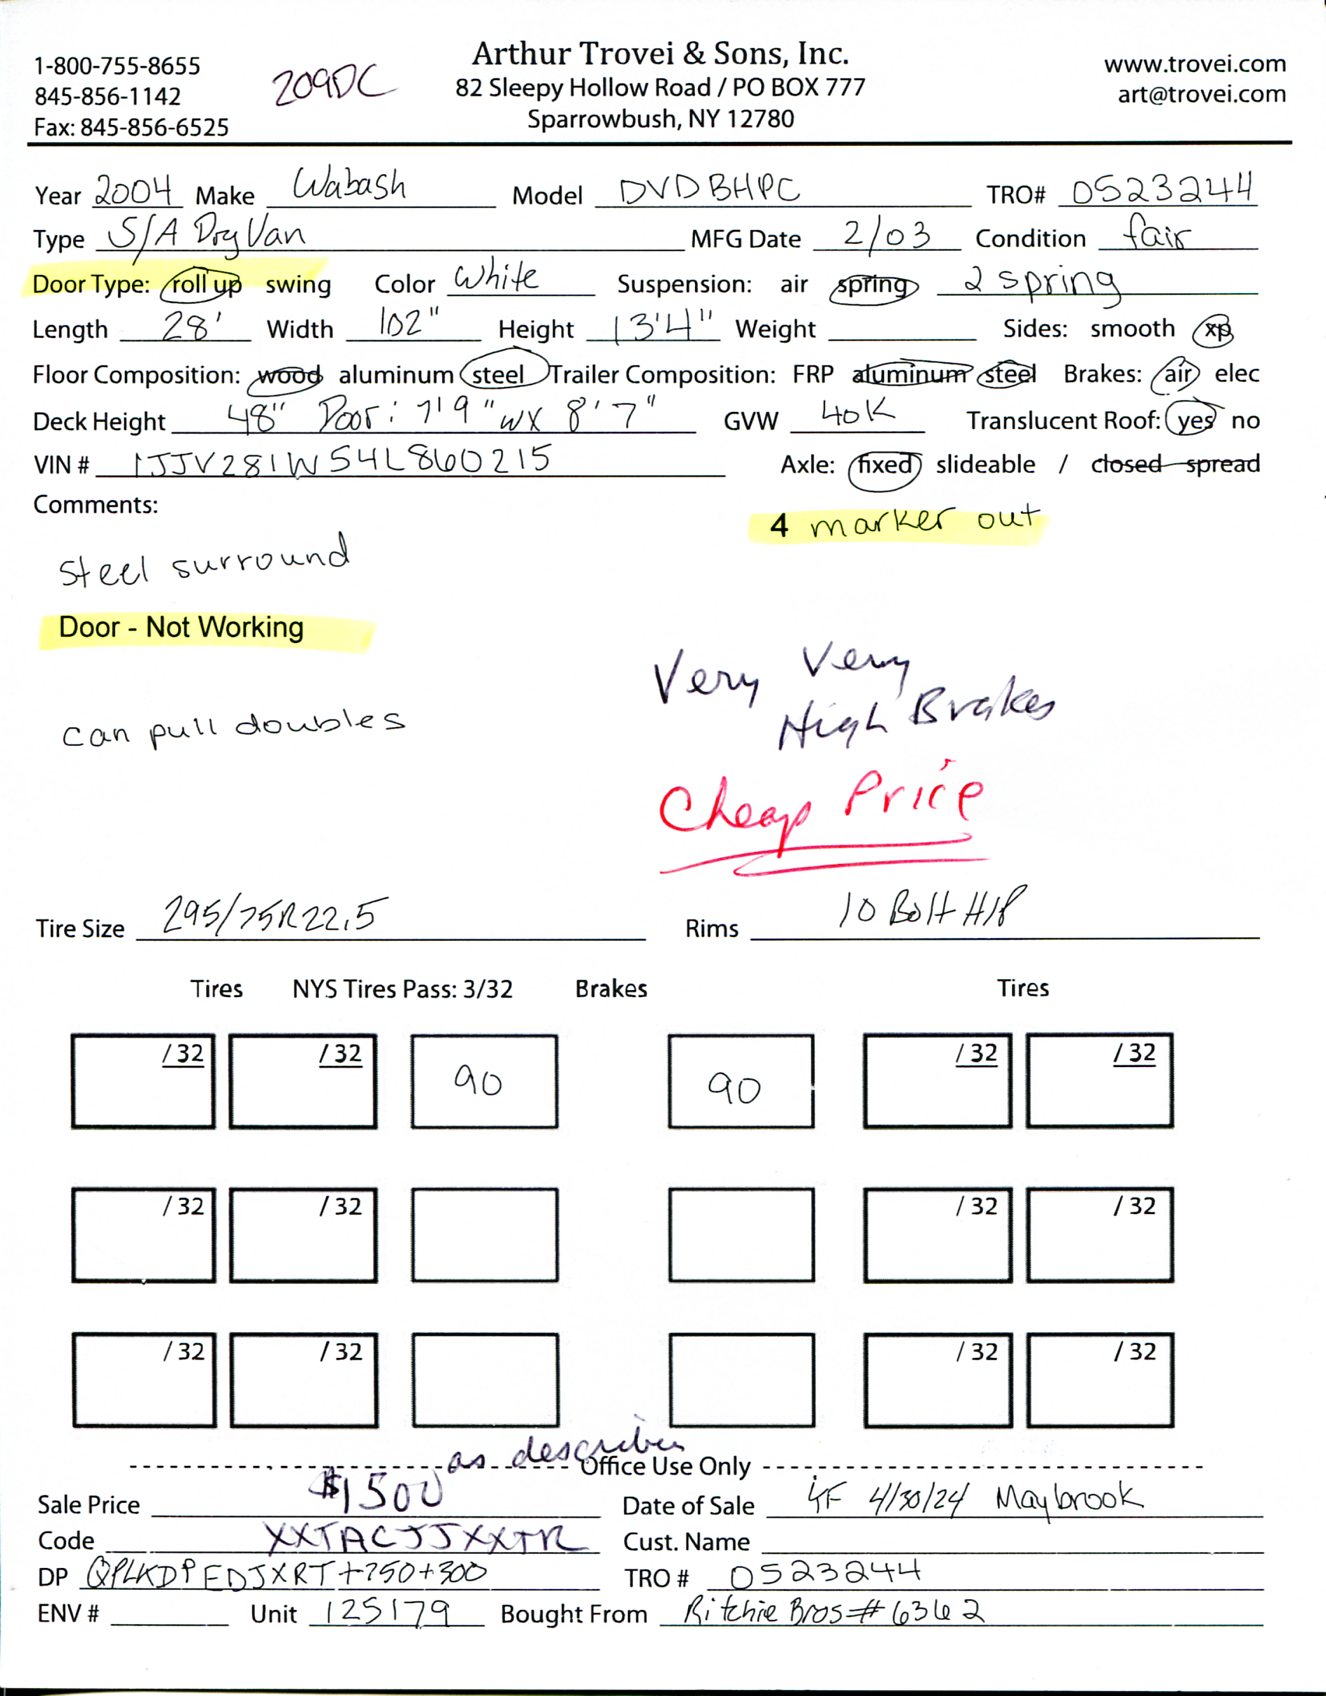 Arthur Trovei & Sons, Inc.
1-800-755-8655 209DC 82 Sleepy Hollow Road / PO BOX 777 www.trovei.com
845-856-1142 Sparrowbush, NY 12780 art@trovei.com
Fax: 845-856-6525
Year 2004 Make Wabash Model DVDBHPC TRO# 0523244
Type S/A Dry Van MFG Date 2/03 Condition fair
Door Type: roll up swing Color White Suspension: air spring 2 spring
Length 28' Width 102" Height 13'4" Weight Sides: smooth xp
Floor Composition: wood aluminum steel Trailer Composition: FRP aluminum steel Brakes: air elec
Deck Height 48" Door: 7'9" wx 8'7" GVW 40K Translucent Roof: yes no
VIN # 1JJV281W54L860215 Axle: fixed slideable / closed spread
Comments:
4 marker out
steel surround
Door - Not Working
Very Very
High Brakes
can pull doubles
Cheap Price
Tire Size 295/75R22.5 Rims 10 Bolt H/P
Tires NYS Tires Pass: 3/32 Brakes Tires
/32 /32 90 90 /32 /32
/32 /32 /32 /32
/32 /32 /32 /32
as describe
Office Use Only
Sale Price $1500 Date of Sale 4/30/24 Maybrook
Code XXTACJJXXTR Cust. Name
DP QPLKDPEDJXRT+750+300 TRO # 0523244
ENV # Unit 125179 Bought From Ritchie Bros # 6362